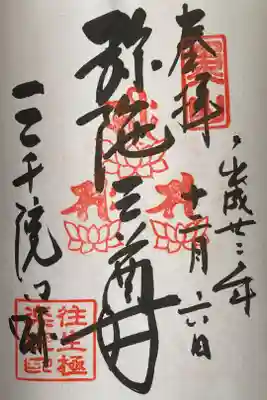 奉拝
平成廿二年
十一月六日
弥陀三尊
三千院門跡
往生極
楽院